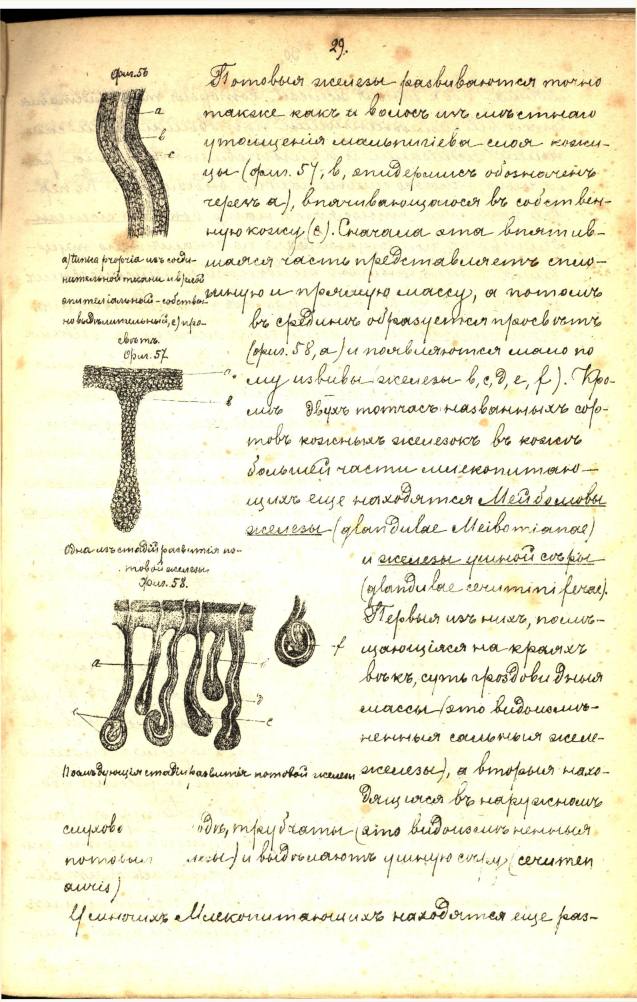 29.
Фиг. 56
a
b
c
a) tunica propria изъ соеди-
нительной ткани и b) слой
эпителіальный - собствен-
но выдѣлительный, c) про-
свѣтъ.
Фиг. 57
a
b
Одна изъ стадій развитія по-
товой железы
Фиг. 58.
a
c
b
d
e
f
Послѣдующія стадіи развитія потовой железы
Потовыя железы развиваются точно
также какъ и волосъ изъ мѣстнаго
утолщенія мальпигіева слоя кожи-
цы (фиг. 57, b, эпидермисъ обозначенъ
черезъ a), впячивающагося въ собствен-
ную кожу (c). Сначала эта впятив-
шаяся часть представляетъ спло-
шную и прямую массу, а потомъ
въ срединѣ образуется просвѣтъ
(фиг. 58, a) и появляются мало по
малу извивы железы b, c, d, e, f). Кро-
мѣ двухъ тотчасъ названныхъ сор-
товъ кожныхъ железокъ въ кожѣ
большей части млекопитаю-
щихъ еще находятся Мейбомовы
железы (glandulae Meibomianae)
и железы ушной сѣры
(glandulae ceruminiferae).
Первыя изъ нихъ, помѣ-
щающіяся на краяхъ
вѣкъ, суть гроздовидныя
массы (это видоизмѣ-
ненныя сальныя желе-
железы), а вторыя нахо-
дящіяся въ наружномъ
слухово трубчаты (это видоизмѣненныя
потовыя лезы) и выдѣляютъ ушную сѣру (cerumen
auris)
У многихъ Млекопитающихъ находятся еще раз-